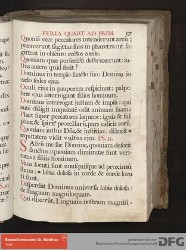 FERIA QUARTA AD PRIM. 57
Quoniam ecce peccatores intenderunt arcū:
paraverunt sagittas suas in pharetra: ut sa
gittent in obscuro rectos corde.
Quoniam quæ perfecisti destruxerunt: iu
stus autem quid fecit?
Dominus in templo sancto suo: Dominus in
cœlo sedes eius.
Oculi eius in pauperem respiciunt: palpe
bræ eius interrogant filios hominum.
Dominus interrogat iustum & impiū: qui
autem diligit iniquitatē odit animam suam.
Pluet super peccatores laqueos: ignis & sul
phur & spiritus procellarū pars calicis eorū.
Quoniam iustus Dñs & iustitias dilexit:
æquitatem vidit vultus eius. PS. 11.
Salvum me fac Domine, quoniam defecit
sanctus: quoniam diminutæ sunt veri
tates a filiis hominum.
Vana locuti sunt unusquisque ad proximū
suum: labia dolosa in corde & corde locu
ti sunt.
Disperdat Dominus universa labia dolosa:
& linguam magniloquam.
Qui dixerunt, Linguam nostram magnifi
DFG